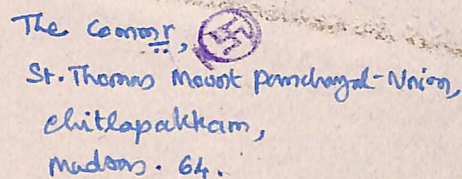 The Commr,
St. Thomas Mount Panchayat-Union,
Chitlapakkam,
Madras. 64.